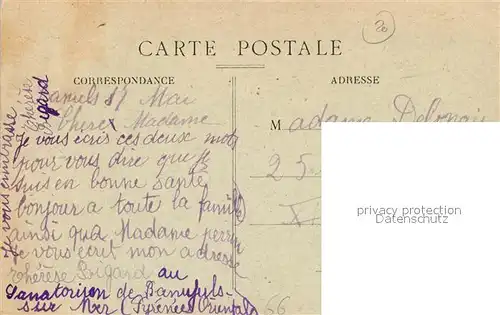 20
CARTE POSTALE
CORRESPONDANCE
ADRESSE
Mai
Chere Madame
Je vous ecris ces deux mots
pour vous dire que je
suis en bonne santé
bonjour a toute la famille
ainsi qua Madame
Je vous ecrit mon adresse
Thérèse Pigard au
Sanatorium de Banyuls-
sur Mer (Pyrénées Orientales
Je vous embrasse
Thérèse
Pigard
Madame
25
66
privacy protection
Datenschutz